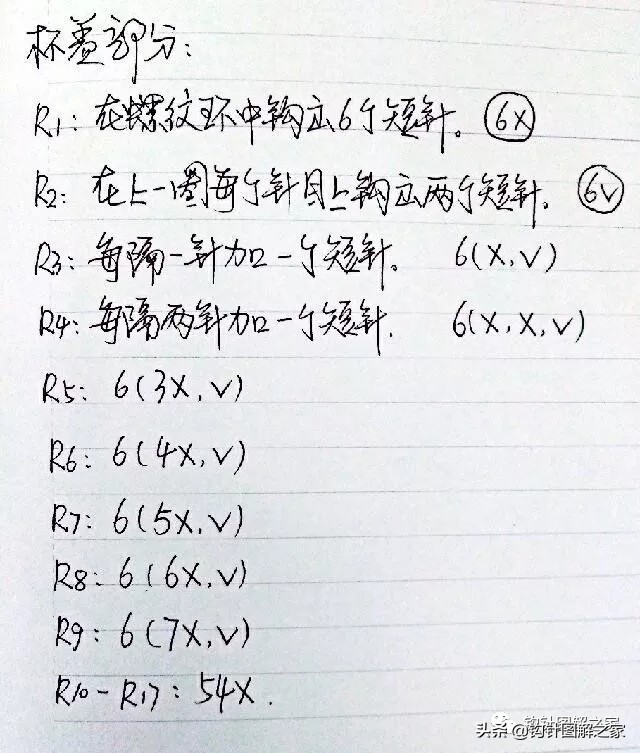 杯盖部分:
R1: 在螺纹环中钩立6个短针。 6X
R2: 在上一圈每个针目上钩立两个短针。 6V
R3: 每隔一针加一个短针。 6(X,V)
R4: 每隔两针加一个短针. 6(X,X,V)
R5: 6(3X,V)
R6: 6(4X,V)
R7: 6(5X,V)
R8: 6(6X,V)
R9: 6(7X,V)
R10-R17: 54X.
钩针图解之家
头条@钩针图解之家